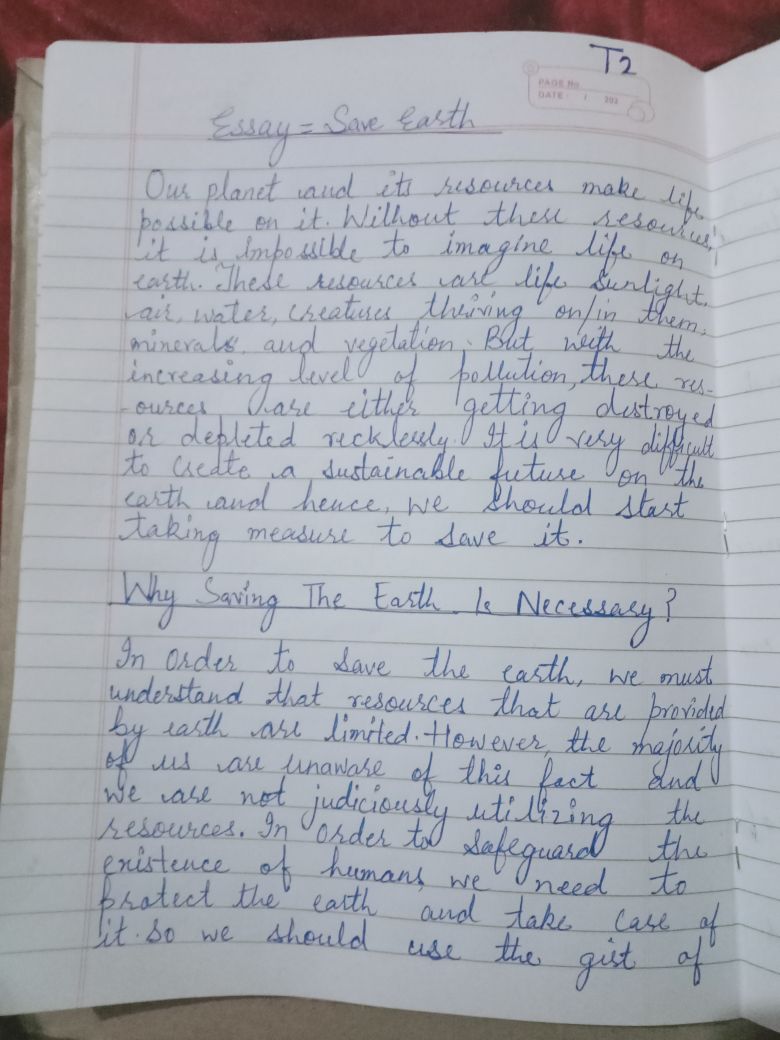 T2
PAGE No.
DATE / / 202
Essay = Save Earth
Our planet and its resources make life
possible on it. Without these resources,
it is impossible to imagine life on
earth. These resources are life Sunlight,
air, water, creatures thriving on/in them,
minerals, and vegetation. But with the
increasing level of pollution, these res-
-ources are either getting destroyed
or depleted recklessly. It is very difficult
to create a sustainable future on the
earth and hence, we should start
taking measure to save it.
Why Saving The Earth Is Necessary?
In order to save the earth, we must
understand that resources that are provided
by earth are limited. However, the majority
of us are unaware of this fact and
we are not judiciously utilizing the
resources. In order to safeguard the
existence of humans, we need to
protect the earth and take care of
it. So we should use the gist of